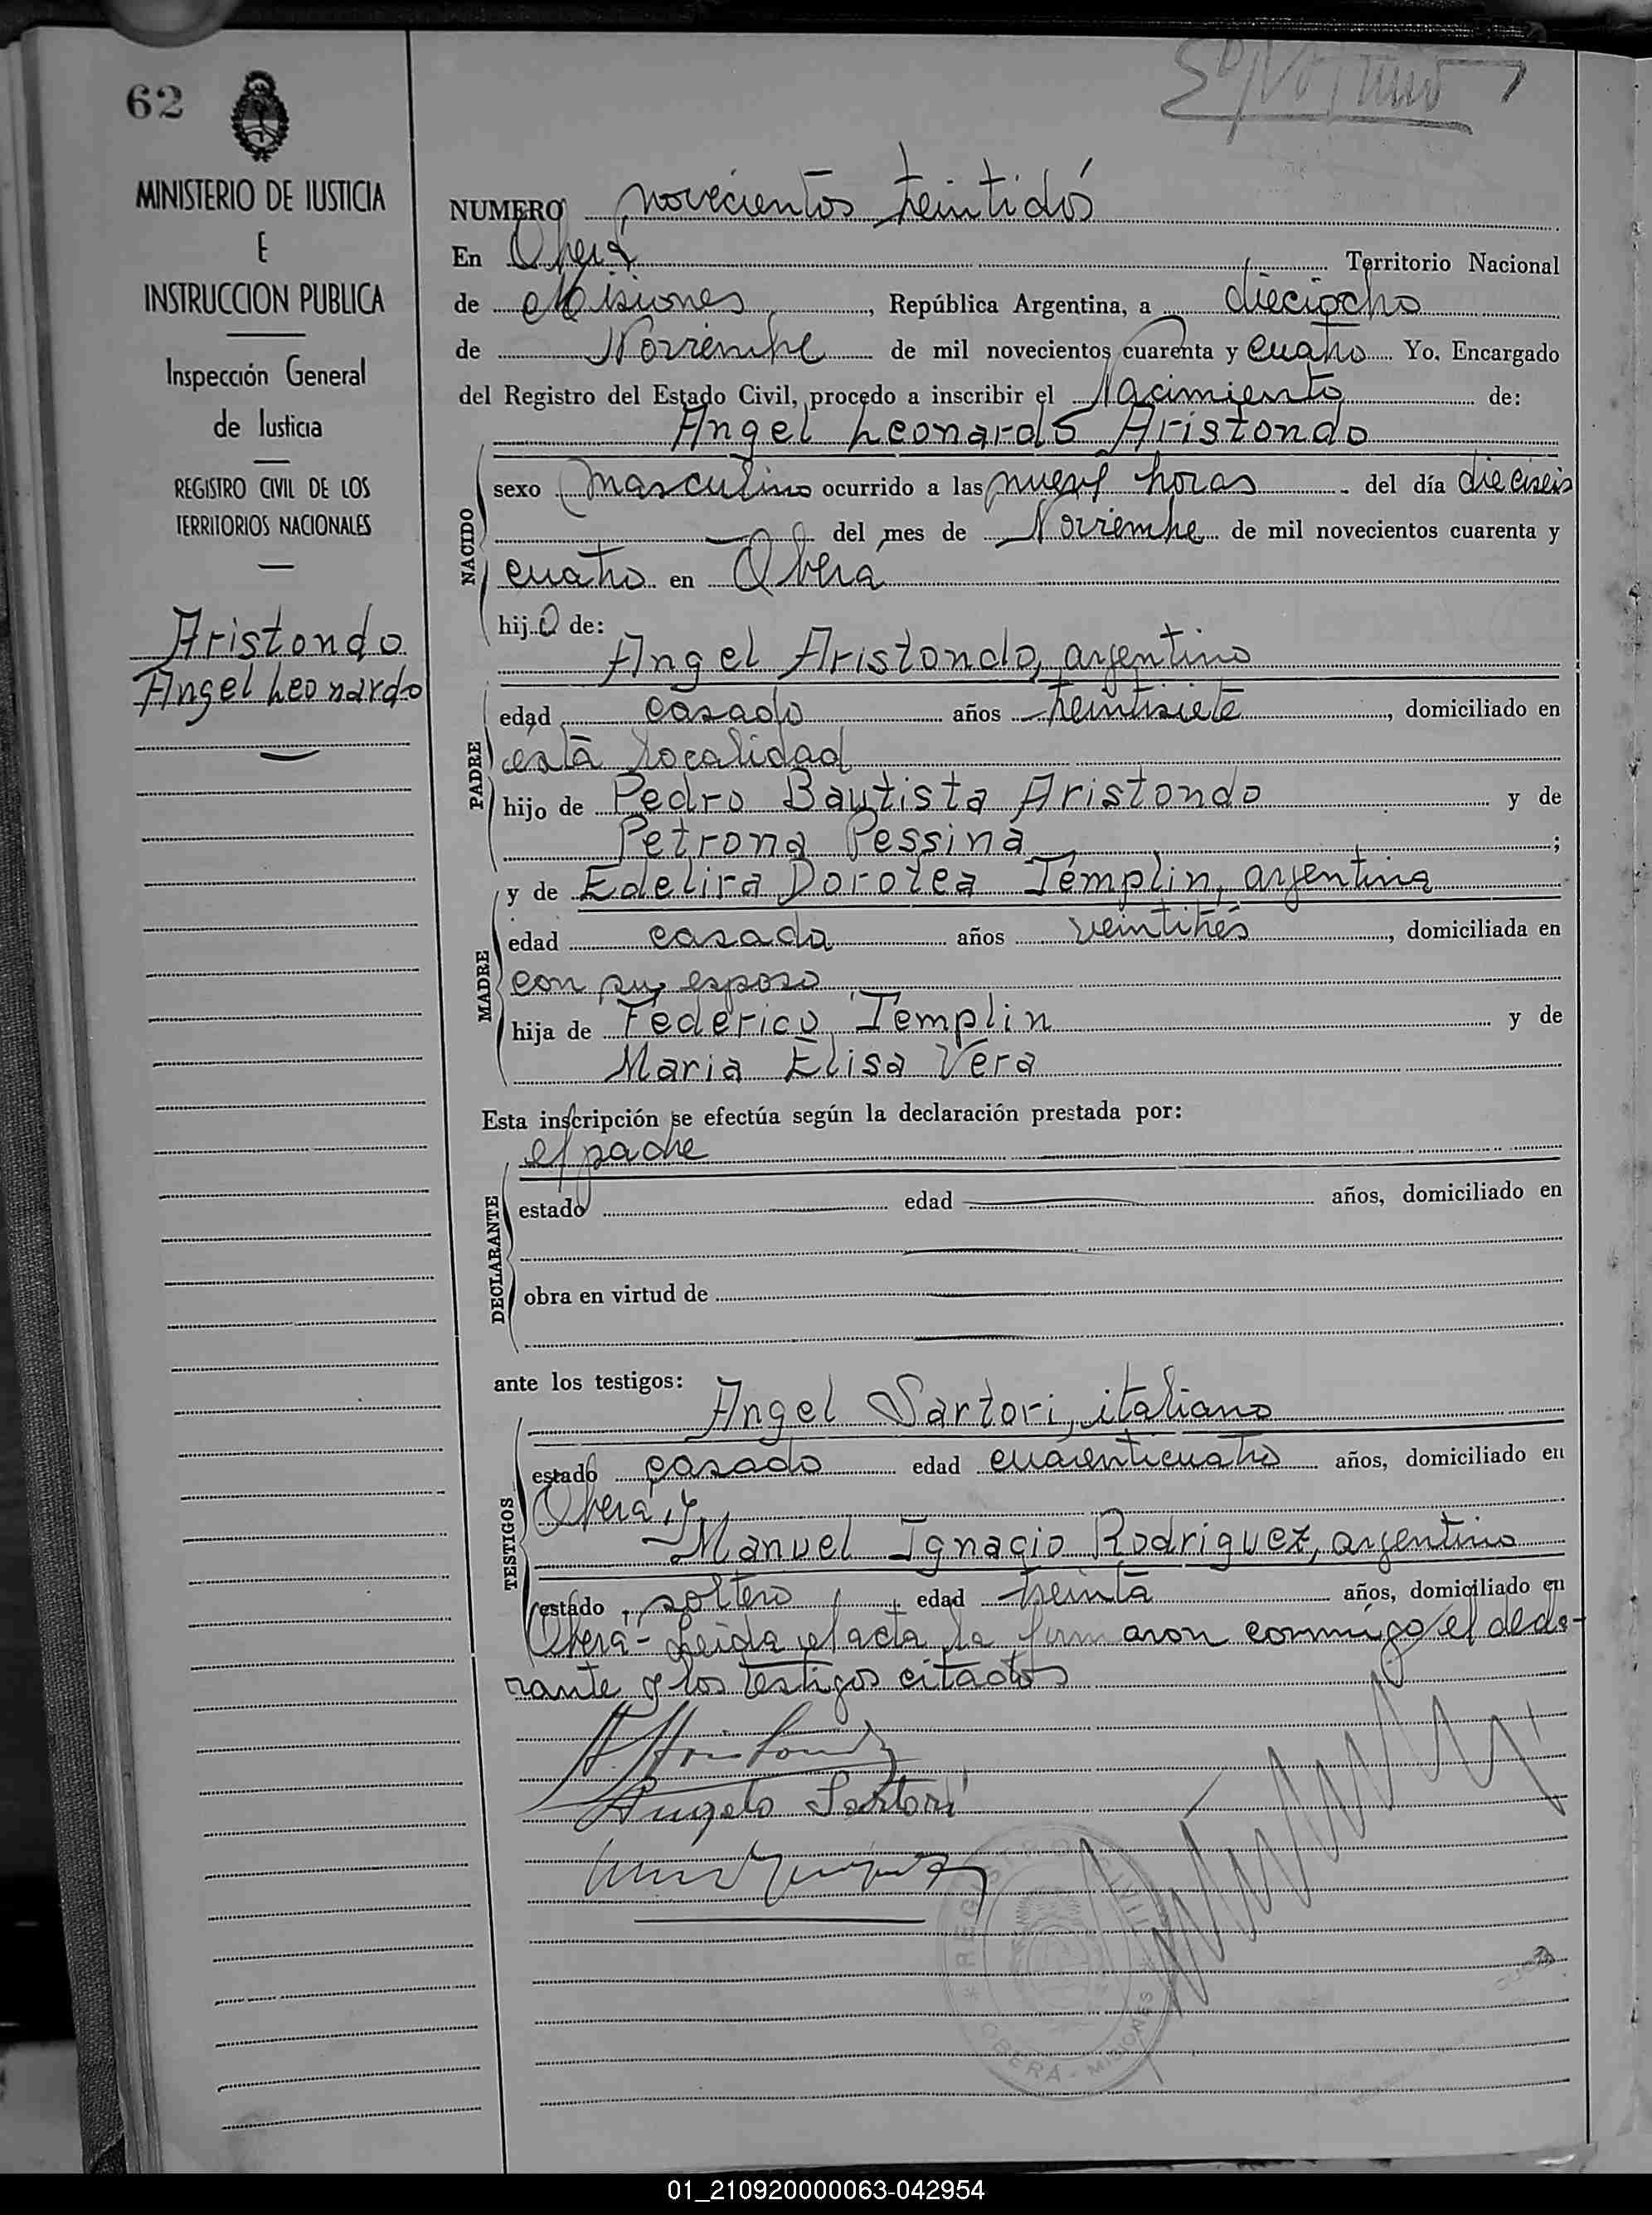 62
MINISTERIO DE JUSTICIA
E
INSTRUCCION PUBLICA
Inspección General
de Justicia
REGISTRO CIVIL DE LOS
TERRITORIOS NACIONALES
Aristondo
Angel Leonardo
NUMERO novecientos treintidós
En Oberá Territorio Nacional
de Misiones, República Argentina, a dieciocho
de Noviembre de mil novecientos cuarenta y cuatro Yo. Encargado
del Registro del Estado Civil, procedo a inscribir el Nacimiento de:
Angel Leonardo Aristondo
NACIDO
sexo masculino ocurrido a las nueve horas del día dieciseis
del mes de Noviembre de mil novecientos cuarenta y
cuatro en Obera
hijo de:
Angel Aristondo, argentino
PADRE
edad casado años treintisiete, domiciliado en
esta localidad
hijo de Pedro Bautista Aristondo y de
Petrona Pessina;
y de Edelira Dorotea Templin, argentina
MADRE
edad casada años veintitrés, domiciliada en
con su esposo
hija de Federico Templin y de
Maria Elisa Vera
Esta inscripción se efectúa según la declaración prestada por:
el padre
DECLARANTE
estado edad años, domiciliado en
obra en virtud de
ante los testigos:
Angel Sartori, italiano
TESTIGOS
estado casado edad cuarenticuatro años, domiciliado en
Oberá y
Manuel Ignacio Rodriguez, argentino
estado soltero edad treinta años, domiciliado en
Oberá - Leida el acta la firmaron conmigo el decla-
rante y los testigos citados
A. Aristondo
Angelo Sartori
REGISTRO CIVIL
OBERÁ - MISIONES
01_210920000063-042954